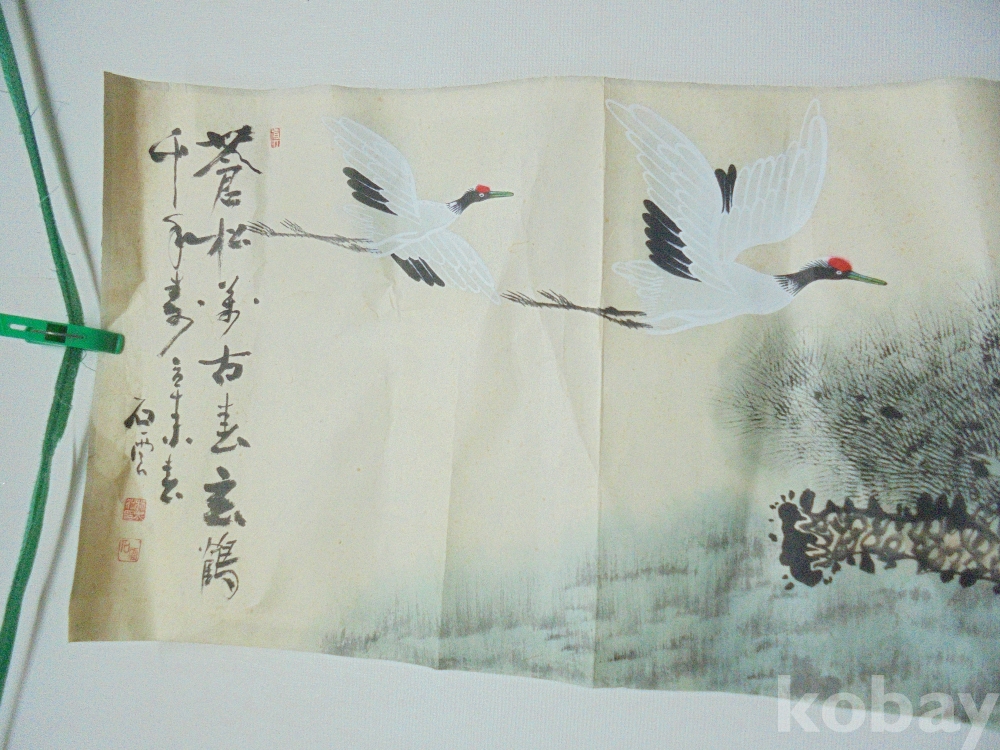 蒼松萬古春玄鶴
千年壽立未春
石雲
kobay